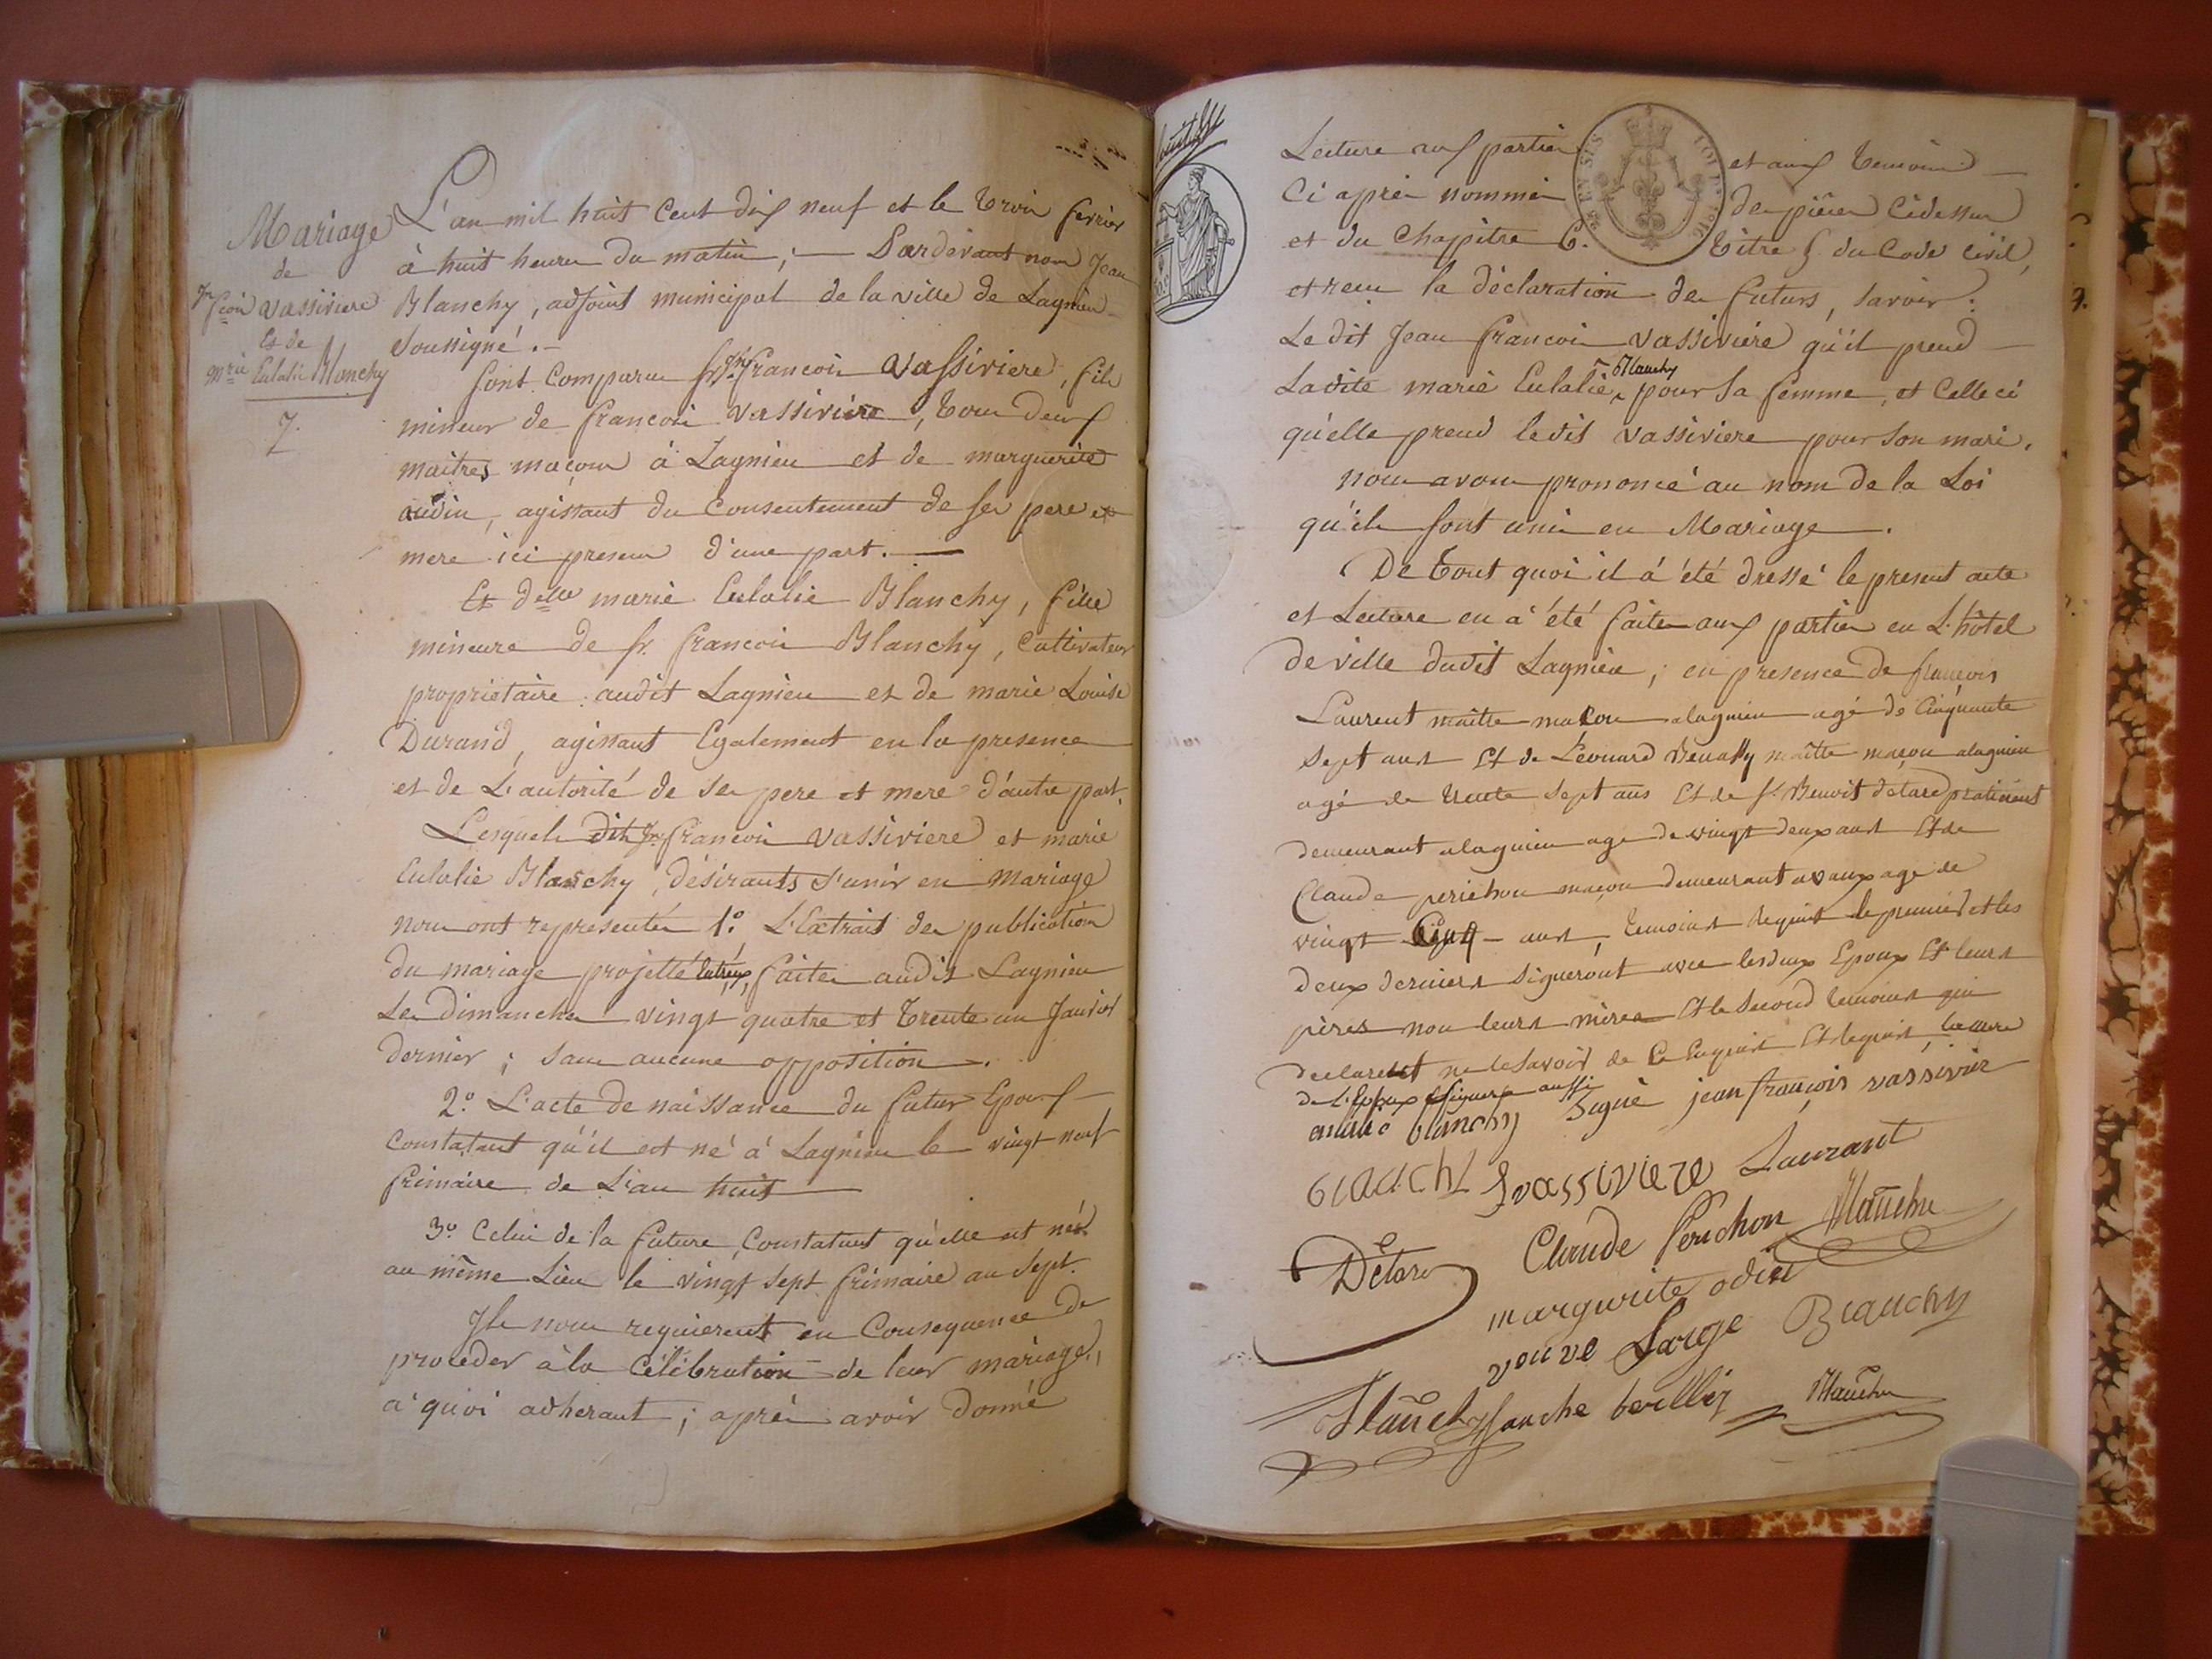 Mariage
de
Jn fcois Vassiviere
et de
mrie Eulalie Blanchy
7.
L'an mil huit cent dix neuf et le trois fevrier
à huit heures du matin; — Pardevant nous Jean
Blanchy, adjoint municipal de la ville de Lagnieu
soussigné. —
Sont comparus sr. Jn. francois Vassiviere, fils
mineur de francois Vassiviere, tous deux
maitres maçons à Lagnieu et de marguerite
audin, agissant du consentement de ses pere et
mere ici presens d'une part. —
Et delle marie Eulalie Blanchy, fille
mineure de sr. francois Blanchy, cultivateur
proprietaire audit Lagnieu et de marie Louise
Durand, agissant Egalement en la presence
et de L'autorité de ses pere et mere d'autre part.
Lesquels dits Jn. francois Vassiviere et marie
Eulalie Blanchy, désirants s'unir en mariage
nous ont representés 1.º L'Extrait des publication
du mariage projetté entr'eux, faites audit Lagnieu
Les dimanches vingt quatre et trente un Janvier
dernier; sans aucune opposition.
2.º L'acte de naissance du futur Epoux
constatant qu'il est né à Lagnieu le vingt neuf
frimaire de L'an huit —
3.º Celui de la future, Constatant qu'elle est née
au même Lieu le vingt sept frimaire an sept.
Ils nous requierent en Consequence de
proceder à la Célébration de leur mariage,
a quoi adherant; après avoir donné
huit
Lecture aux parties et aux temoins
Ci après nommés des pièces cidessus
et du Chapitre 6. titre 5. du Code civil,
et reçu la déclaration des futurs, savoir:
Le dit Jean francois Vassiviere qu'il prend
Ladite marie Eulalie Blanchy pour sa femme, et Celle ci
qu'elle prend ledit Vassiviere pour son mari.
nous avons prononcé au nom de la Loi
qu'ils sont unis en Mariage.
De tout quoi il á été dressé le present acte
et Lecture en á été faite aux parties en L'hôtel
de ville dudit Lagnieu; en presence de françois
Laurent maitre maçon alagnieu agé de Cinquante
sept ans Et de Léonard maitre maçon alagnieu
agé de trente sept ans Et de sr. Benoit detare praticient
demeurant alagnieu age de vingt deux ans Et de
Claude perichon maçon demeurant avaux age de
vingt Cinq ans, temoins requis le premier et les
deux derniers signeront avec lesdeux Epoux Et leurs
pères non leurs mères Et le second temoins qui
declarent ne le savoir de Ce Enquis Et requis, la mere
de L'Epoux signera aussi
eulalie blanchy Signé jean françois vassivire
blachy fvassiviere Laurant
Détare Claude Perichon Blanchy
marguerite odin
veuve Large Blanchy
Blanchy